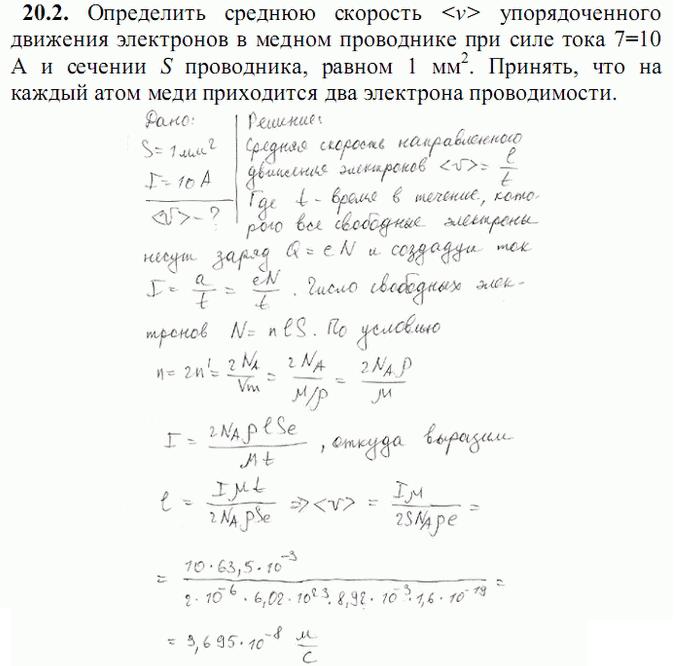 20.2. Определить среднюю скорость <v> упорядоченного
движения электронов в медном проводнике при силе тока 7=10
А и сечении S проводника, равном 1 мм². Принять, что на
каждый атом меди приходится два электрона проводимости.
Дано:
S=1мм²
I=10A
<v>-?
Решение:
Средняя скорость направленного
движения электронов <v> = l/t
Где t - время в течение, кото-
рого все свободные электроны
несут заряд Q = eN и создадут ток
I = Q/t = eN/t. Число свободных элек-
тронов N = nlS. По условию
n = 2n' = 2N_A/V_m = 2N_A/(M/ρ) = 2N_Aρ/M
I = 2N_AρlSe/Mt, откуда выразим
l = IMt/2N_AρSe => <v> = IM/2SN_Aρe =
= 10·63,5·10⁻³/2·10⁻⁶·6,02·10²³·8,92·10⁻³·1,6·10⁻¹⁹ =
= 3,695·10⁻⁸ м/с